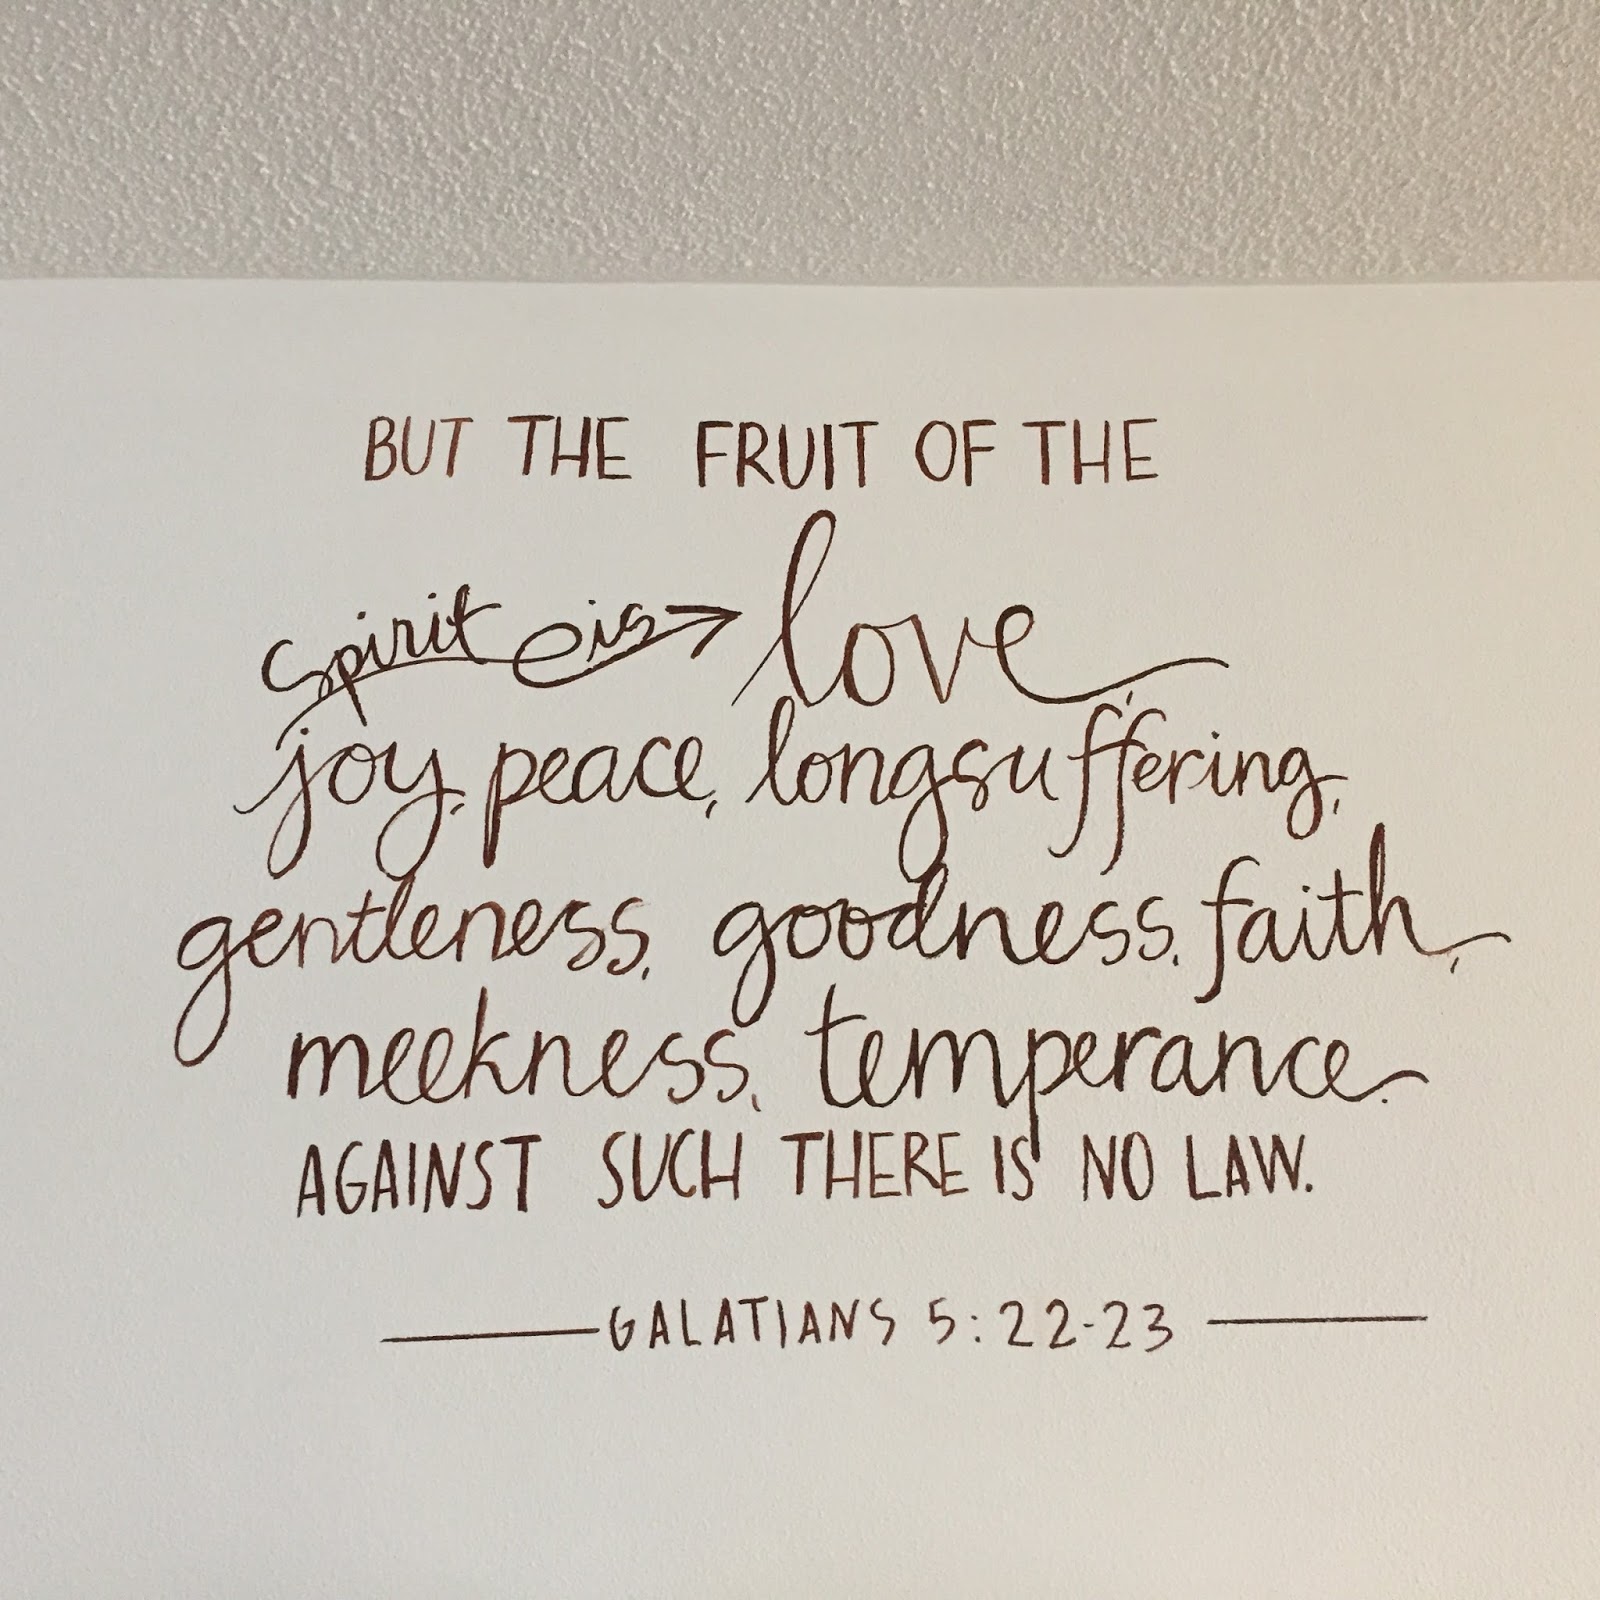 BUT THE FRUIT OF THE
spirit is → love,
joy, peace, longsuffering,
gentleness, goodness, faith,
meekness, temperance.
AGAINST SUCH THERE IS NO LAW.
GALATIANS 5:22-23